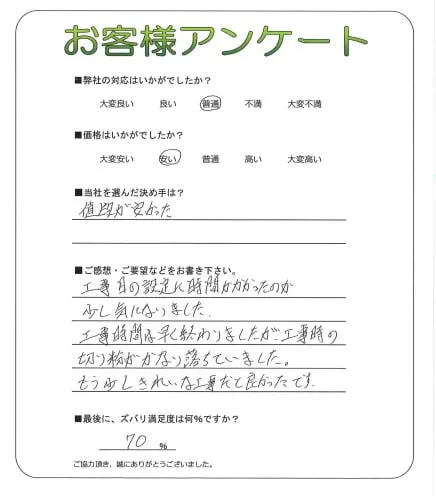 お客様アンケート
■弊社の対応はいかがでしたか？
大変良い 良い 普通 不満 大変不満
■価格はいかがでしたか？
大変安い 安い 普通 高い 大変高い
■当社を選んだ決め手は？
値段が安かった
■ご感想・ご要望などをお書き下さい。
工事日の設定に時間がかかったのが
少し気になりました.
工事時間は早く終わりましたが、工事時の
切り粉がかなり落ちていました。
もう少しきれいな工事だと良かったです.
■最後に、ズバリ満足度は何％ですか？
70 %
ご協力頂き、誠にありがとうございました。